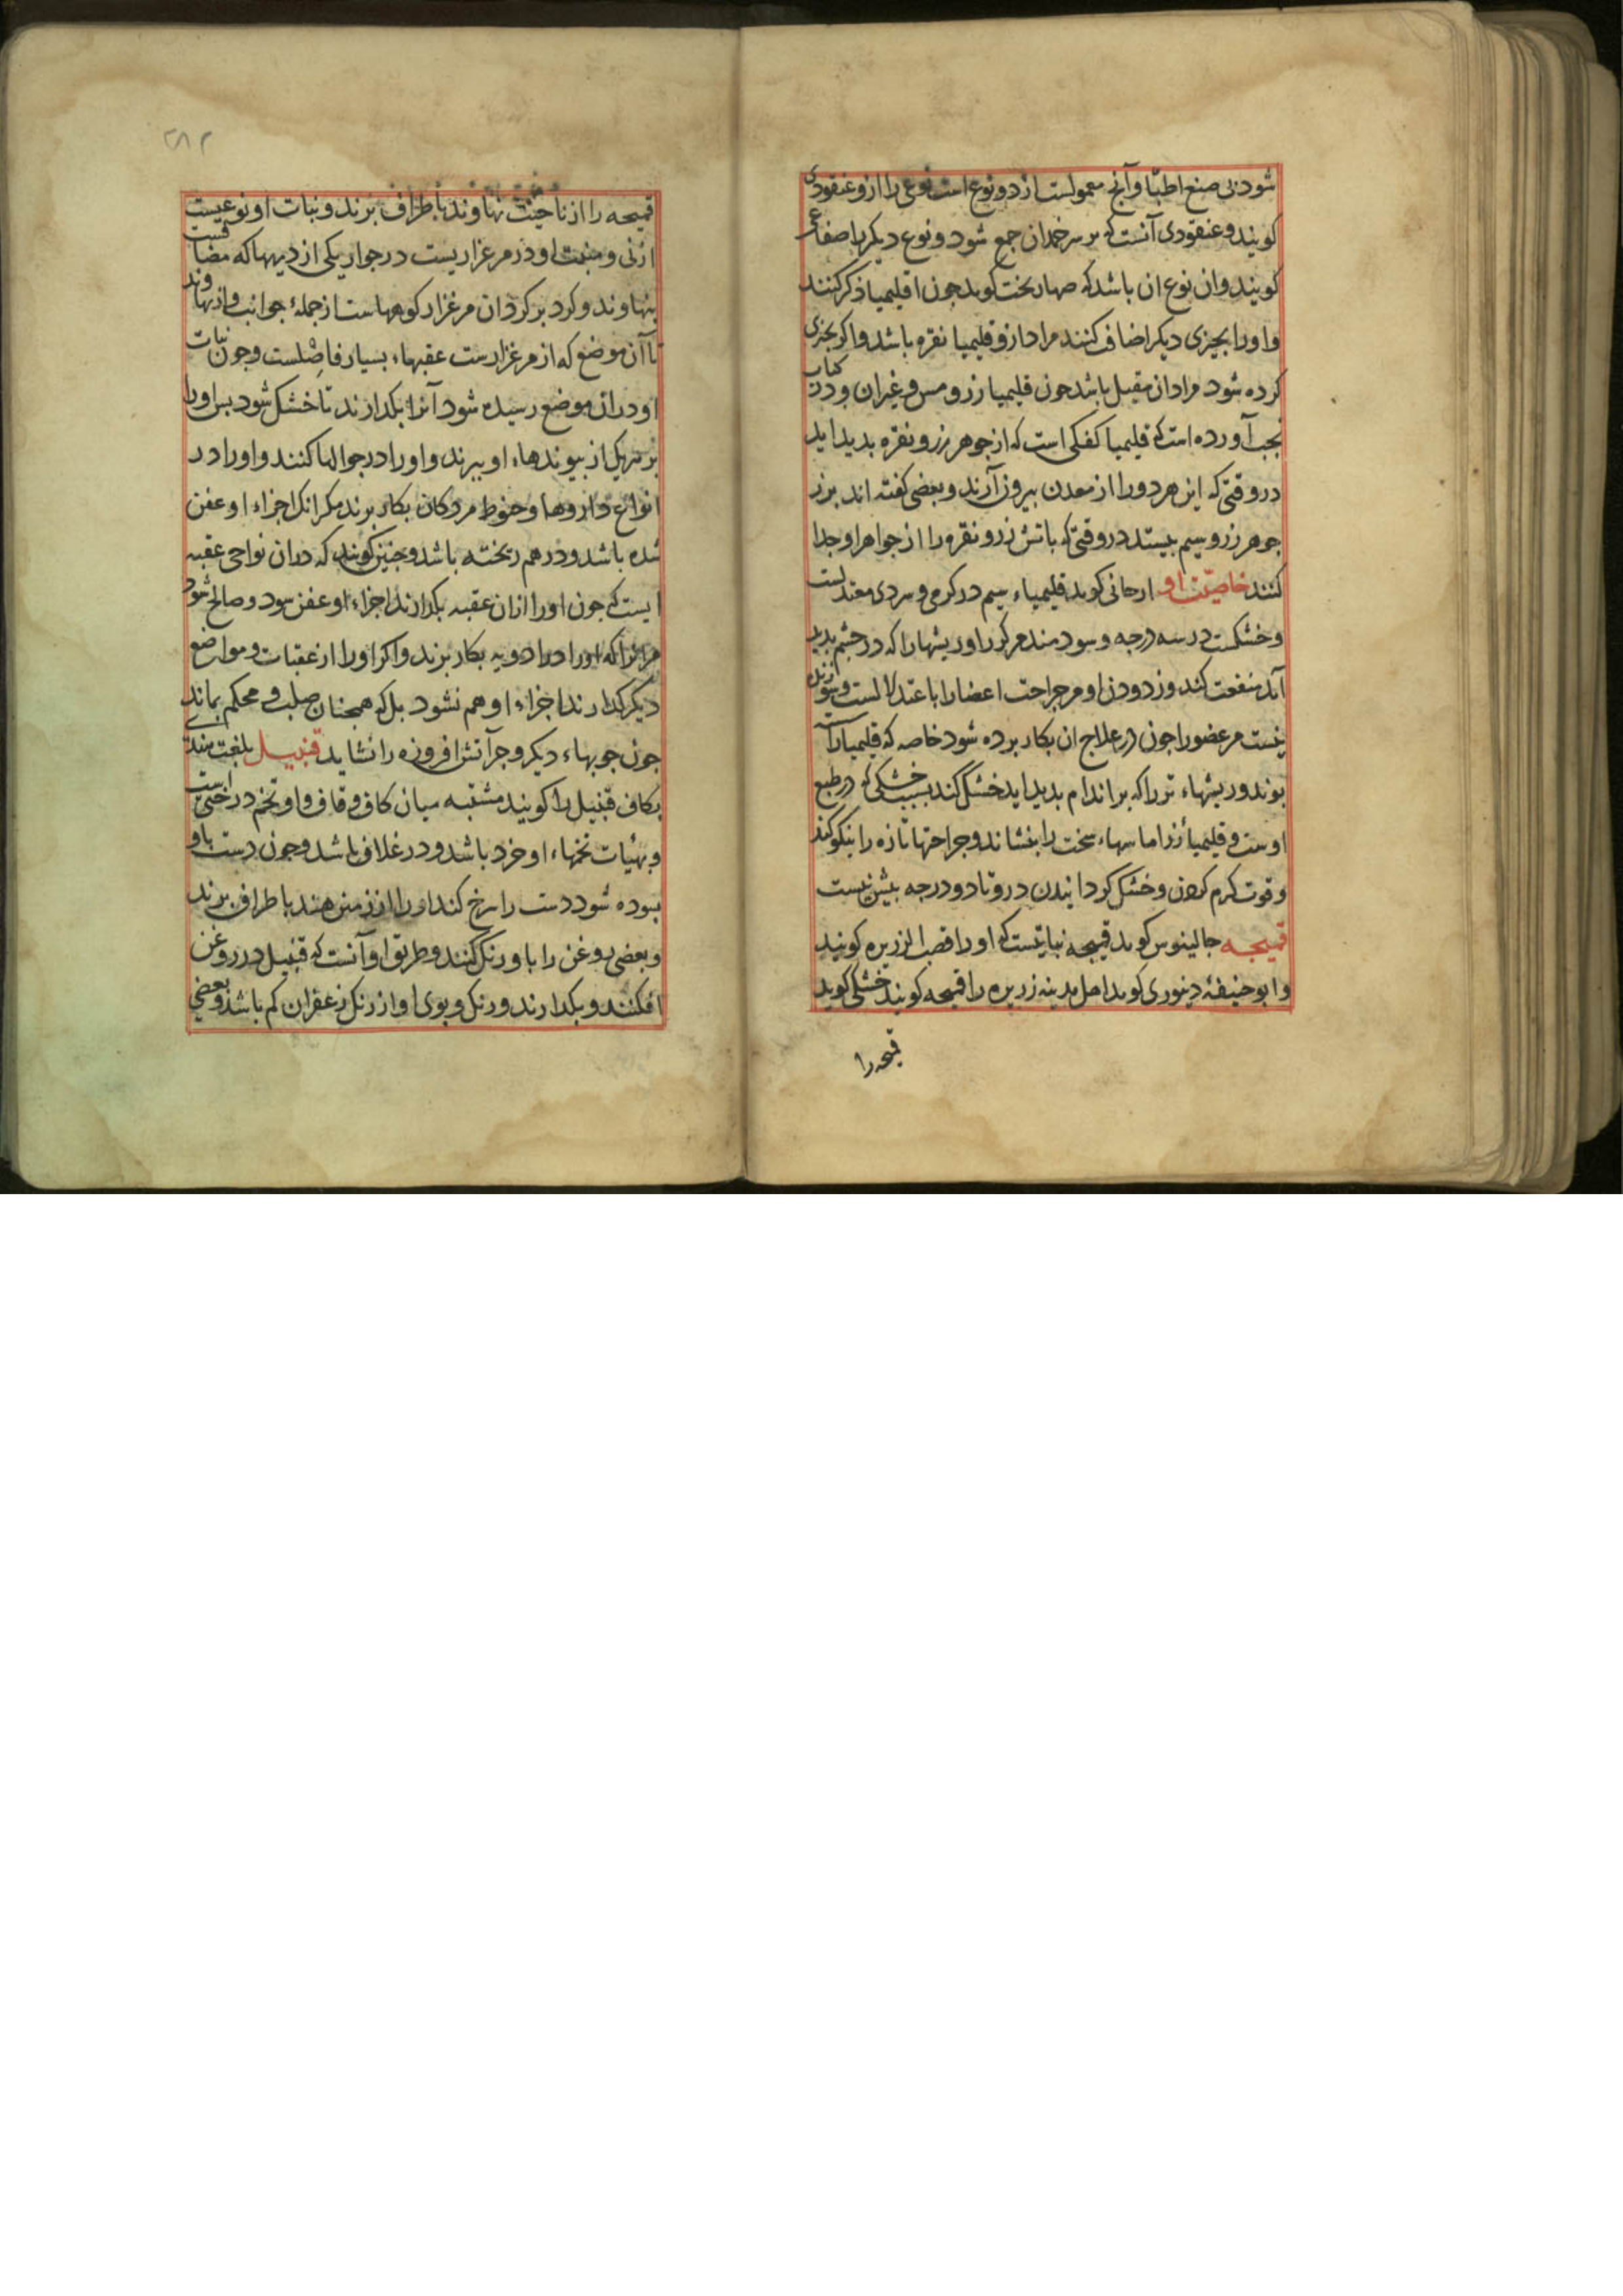 شود بی صنع اطبّا و آنچ معمولست از دو نوع است نوعی را ازو عنقودی
کویند و عنقودی آنست که بر سر خمدان جمع شود و نوع دیکر را صفایحی
کویند و ان نوع ان باشد که صهاربخت کوید جون اقلیمیا ذکر کنند
و او را بجیزی دیکر اضافت نکنند مراد ازو قلیمیا نقره باشد و اکر بجیزی
کرده شود مراد ان مقبل باشد جون قلیمیا زر و مس و غیر ان و در کتاب
نجب آورده است که قلیمیا کفکی است که از جوهر زر و نقره بدید اید
در وقتی که این هر دو را از معدن بیرون آرند و بعضی کفته اند بر زر
جوهر زر و سیم بیستد در وقتی که باتش زر و نقره را از جواهر او جدا
کنند خاصیّت او ارجانی کوید قلیمیاء سیم در کرمی و سردی معتدلست
و خشکست در سه درجه و سودمند مر کر را و ریشها را که در جشم بدید
آید منفعت کند و زدودن او مر جراحت اعضا را باعتدالست و سوزنده
نیست مر عضو را جون در علاج ان بکار برده شود خاصه که قلیمیا را
بوند و ریشهاء تر را که بر اندام بدید اید خشک کند بسبب خشکی که در طبع
اوست و قلیمیاء زر اماسهاء سخت را بنشاند و جراحتها تازه را نیکو کند
و قوت کرم کردن و خشک کردانیدن درو تا دو درجه بیش نیست
قمیحه جالینوس کوید قمیحه نباتیست که او را قصب الزریره کویند
و ابو حنیفهٔ دینوری کوید اهل مدینه زریره را قمیحه کویند خشکی کوید
قمیحه را
۲۸۲
قمیحه را از ناحیت نهاوند باطراف برند و نبات او نوعیست
از نی و منبت او در مرغزاریست در جوار یکی از دیهها که مضافست
بنهاوند و کرد بر کرد ان مرغزار کوههاست از جملهٔ جوانب و از نهاوند
تا آن موضع که از مرغزارست عقبهاء بسیار فاصلست و جون نبات
او در ان موضع رسیده شود آنرا بکذارند تا خشک شود بس او را
بر هر یک از بیوندهاء او ببرند و او را در جوالها کنند و او را در
انواع داروها و حنوط مردکان بکار برند مکر انک اجزاء او عفن
شده باشد و در هم ریخته باشد و جنین کویند که در ان نواحی عقبه
ایست که جون او را ازان عقبه بکذارند اجزاء او عفن شود و صالح شود
مر انرا که او را در ادویه بکار برند و اکر او را از عقبات و مواضع
دیکر کذارند اجزاء او هم نشود بل که همجنان صلب و محکم بماند
جون جوبهاء دیکر و جز آتش افروزه را نشاید قنبیل بلغت هندی
بکاف قنبیل را کویند مشتبه میان کاف و قاف و او تخم درختی است
و بهیات تخمهاء او خرد باشد و در غلاف باشد و جون دست باو
بسوده شود دست را سرخ کند او را از زمین هند باطراف برند
و بعضی روغن را باو رنک کنند و طریق او آنست که قنبیل در روغن
افکنند و بکذارند و رنک و بوی او از رنک زعفران کم باشد و بعضی